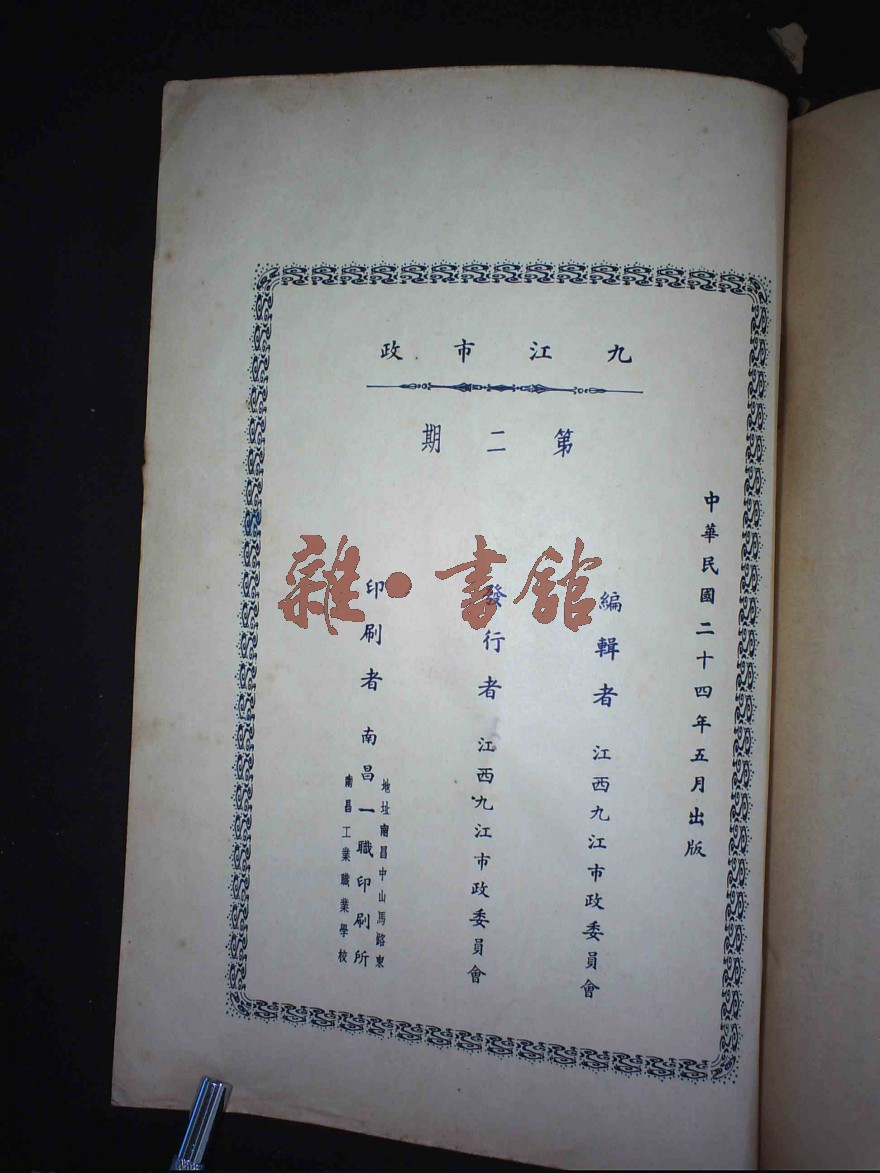 九江市政
第二期
中華民國二十四年五月出版
編輯者 江西九江市政委員會
發行者 江西九江市政委員會
印刷者 南昌一職印刷所
地址南昌中山馬路東
南昌工業職業學校
雜·書館